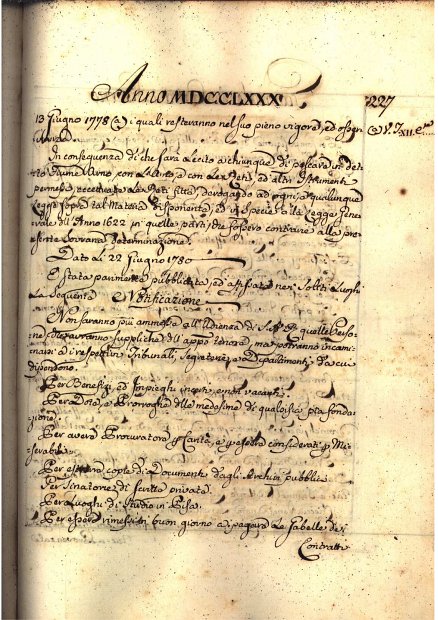 Anno MDCCLXXX
227
13 Giugno 1778 (a) i quali resteranno nel suo pieno vigore, ed osser-
vanza.
(a) V. T. XII. C.
In conseguenza di che sarà lecito a chiunque di pescare in det-
to Fiume Arno con Lenze, con Le Reti, ed altri Istrumenti
permessi, eccettuate Le Reti fitte, derogando ad ogni, e qualunque
Legge sopra tal Materia disponente, ed in specie alla Legge Gene-
rale dell'Anno 1622 in quelle parti, che fossero contrarie alla pre-
sente Sovrana determinazione.
Dato Li 22 Giugno 1780
È stata parimente pubblicata, ed affissa nei Soliti Luoghi
La Seguente Notificazione
Non saranno più ammesse all'Udienza di S.A.R. quelle Perso-
ne, che avranno suppliche dell'appo tenore, ma potranno incami-
narsi ai respettivi Tribunali, Segreterie, e Dipartimenti da cui
dipendono.
Per Benefizi, ed Impieghi incerti, e non vacanti.
Per Dote, e Proroghe delle medesime di qualsisia pia fonda-
zione.
Per avere Procuratore p Carità, e p essere considerati p Mi-
serabili.
Per estrarre copie di Documenti dagli Archivi pubblici.
Per Sanatorie di scritta privata.
Per Luoghi di Studio in Pisa.
Per essere rimessi in buon giorno a pagare Le Gabelle dei
Contratti